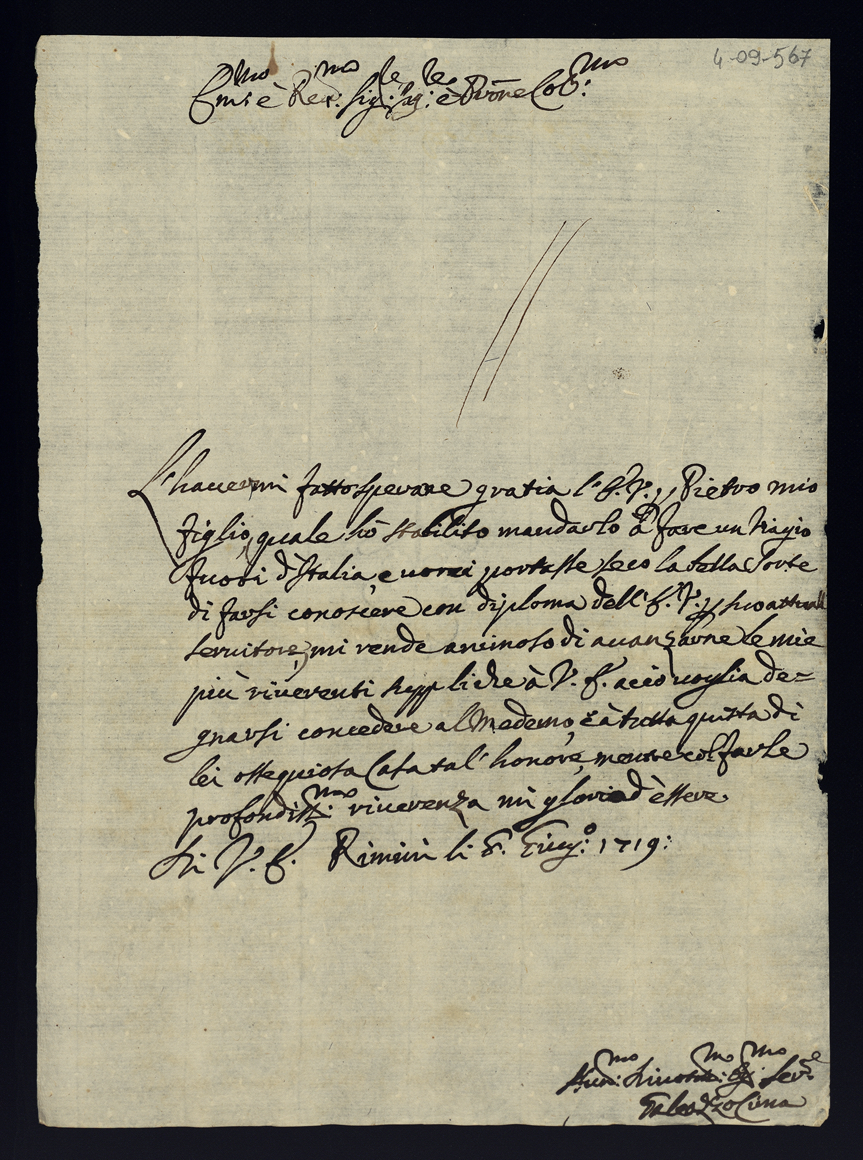 4-09-567
Em:mo è Re:mo Sig:re Sig:re è Pron̄e Col:mo
L'hauermi fatto sperare gratia l'E.V. Pietro mio
figlio, quale hò stabilito mandarlo à fare un Viagio
fuori d'Italia, e uorei portasse seco la bella sorte
di farsi conoscere con diploma dell'E.V. suo attuall
seruitore, mi rende animoso di auanzarne le mie
più riuerenti suppliche à V.E. acciò uoglia de=
gnarsi concedere al Medemo, è à tutta questa di
lei ossequiosa Casa tal' honore, mentre col farle
profondiss:ma riuerenza mi glorio d'essere
Di V.E. Rimini li 8. Giug:o 1719:
Hum:mo Diuot:mo Obl:mo Ser:re
Galeazzo Cima